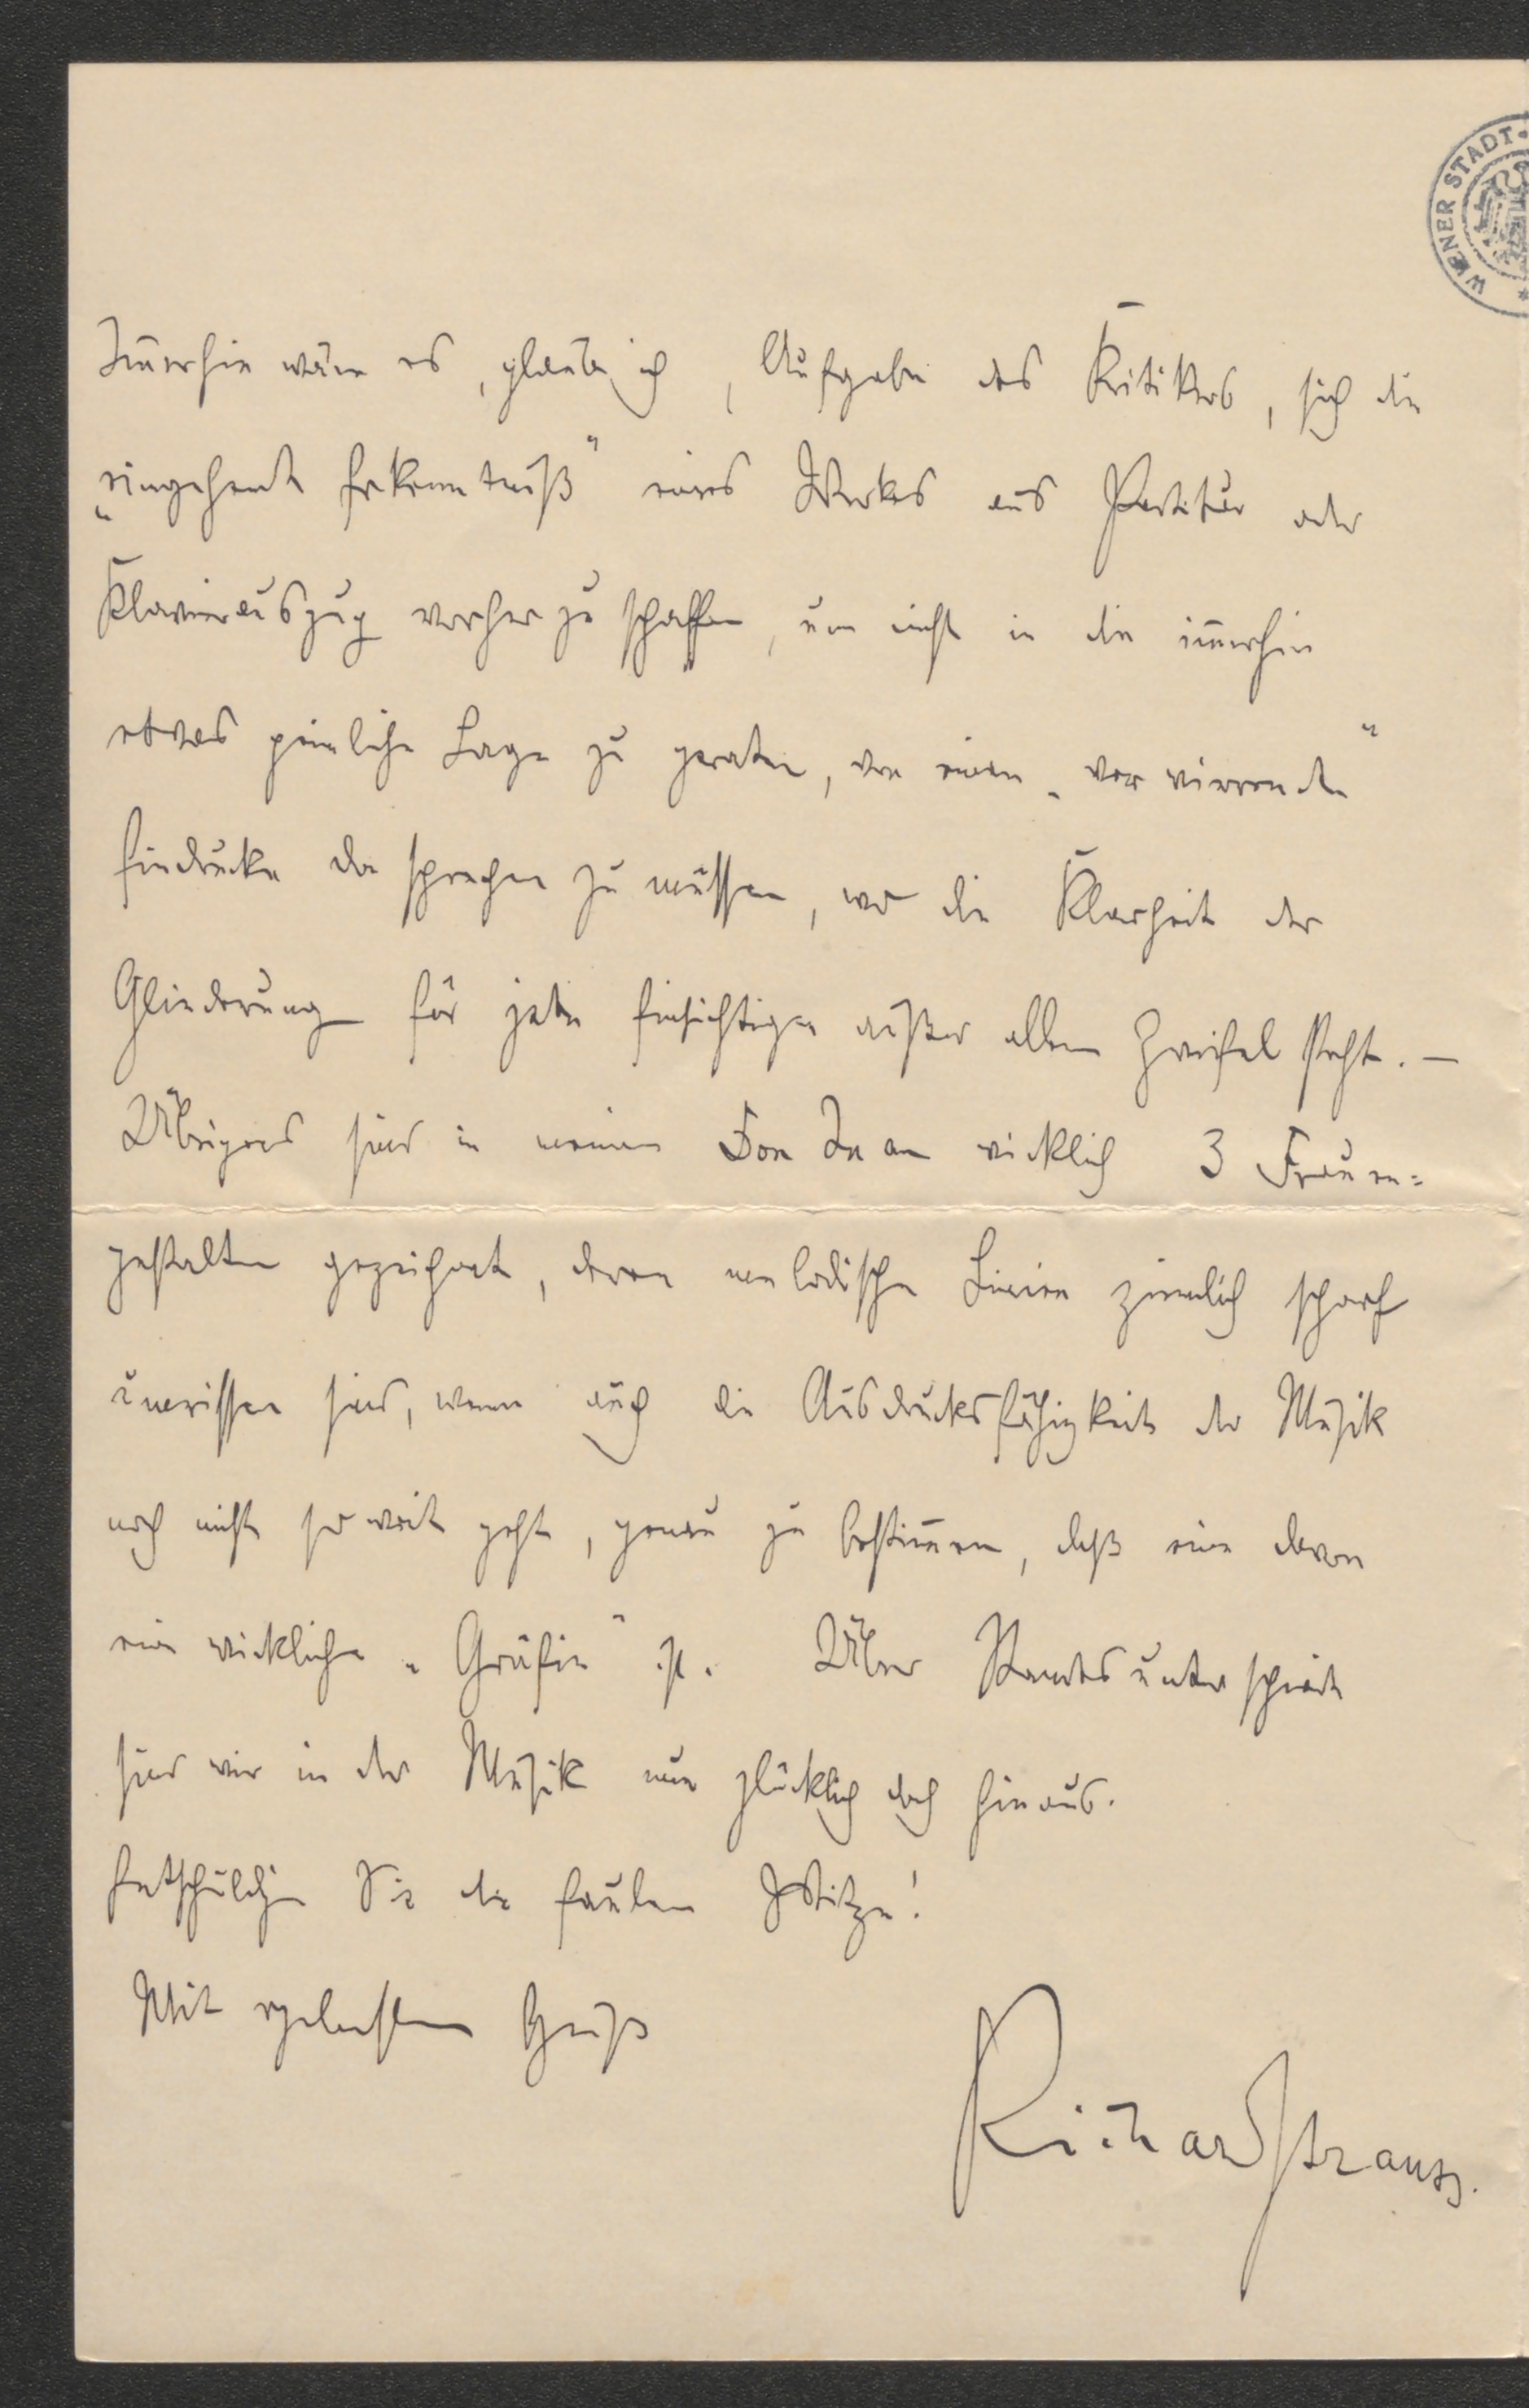 WIENER STADT-
Im̄erhin wäre es, glaube ich, Aufgabe des Kritikers, sich die
„eingehende Erkenntniß“ eines Werkes aus Partitur oder
Klavierauszug vorher zu schaffen, um nicht in die im̄erhin
etwas peinliche Lage zu geraten, von einem „verwirrenden“
Eindrucke da sprechen zu müssen, wo die Klarheit der
Gliederung für jeden Einsichtigen außer allem Zweifel steht. —
Übrigens sind in meinem Don Juan wirklich 3 Frauen=
gestalten gezeichnet, deren melodische Linien ziemlich scharf
umrissen sind, wenn auch die Ausdrucksfähigkeit der Musik
noch nicht so weit geht, genau zu bestim̄en, daß eine davon
eine wirkliche „Gräfin“ ist. Über Standesunterschiede
sind wir in der Musik nun glücklich doch hinaus.
Entschuldigen Sie die faulen Witze!
Mit Gruß
Richard Strauss.